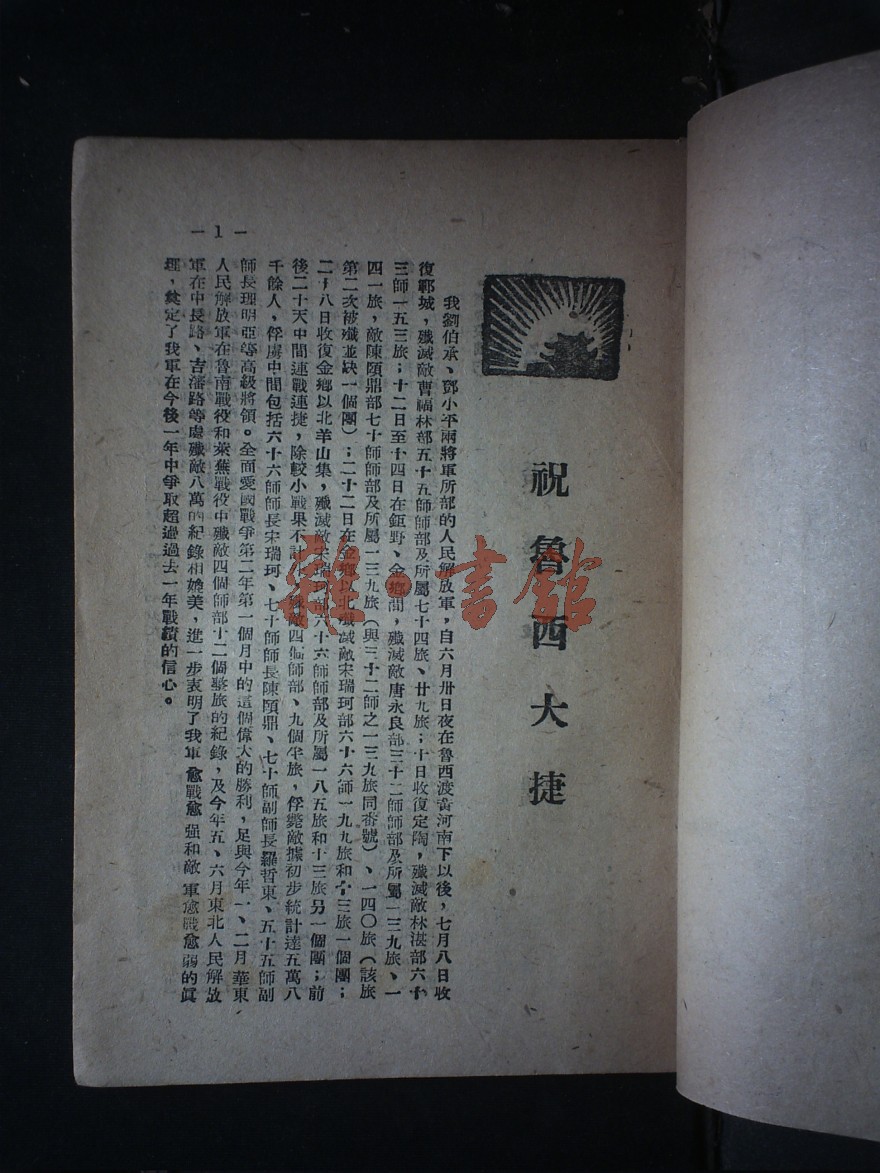 祝魯西大捷
我劉伯承、鄧小平兩將軍所部的人民解放軍，自六月卅日夜在魯西渡黃河南下以後，七月八日收
復鄆城，殲滅敵曹福林部五十五師師部及所屬七十四旅、廿九旅；十日收復定陶，殲滅敵林湛部六十
三師一五三旅；十二日至十四日在鉅野、金鄉間，殲滅敵唐永良部三十二師師部及所屬一三九旅、一
四一旅，敵陳頤鼎部七十師師部及所屬一三九旅（與三十二師之一三九旅同番號）、一四〇旅（該旅
第二次被殲並缺一個團）；二十二日在金鄉以北殲滅敵宋瑞珂部六十六師一九九旅和十三旅一個團；
二十八日收復金鄉以北羊山集，殲滅敵宋瑞珂部六十六師師部及所屬一八五旅和十三旅另一個團；前
後二十天中間連戰連捷，除較小戰果不計外，殲敵四個師部、九個半旅，俘斃敵據初步統計達五萬八
千餘人，俘虜中間包括六十六師師長宋瑞珂、七十師師長陳頤鼎、七十師副師長羅哲東、五十五師副
師長理明亞等高級將領。全面愛國戰爭第二年第一個月中的這個偉大的勝利，足與今年一、二月華東
人民解放軍在魯南戰役和萊蕪戰役中殲敵四個師部十二個整旅的紀錄，及今年五、六月東北人民解放
軍在中長路、吉瀋路等處殲敵八萬的紀錄相媲美，進一步表明了我軍愈戰愈强和敵軍愈戰愈弱的眞
理，奠定了我軍在今後一年中爭取超過過去一年戰績的信心。
—1—
雜·書館